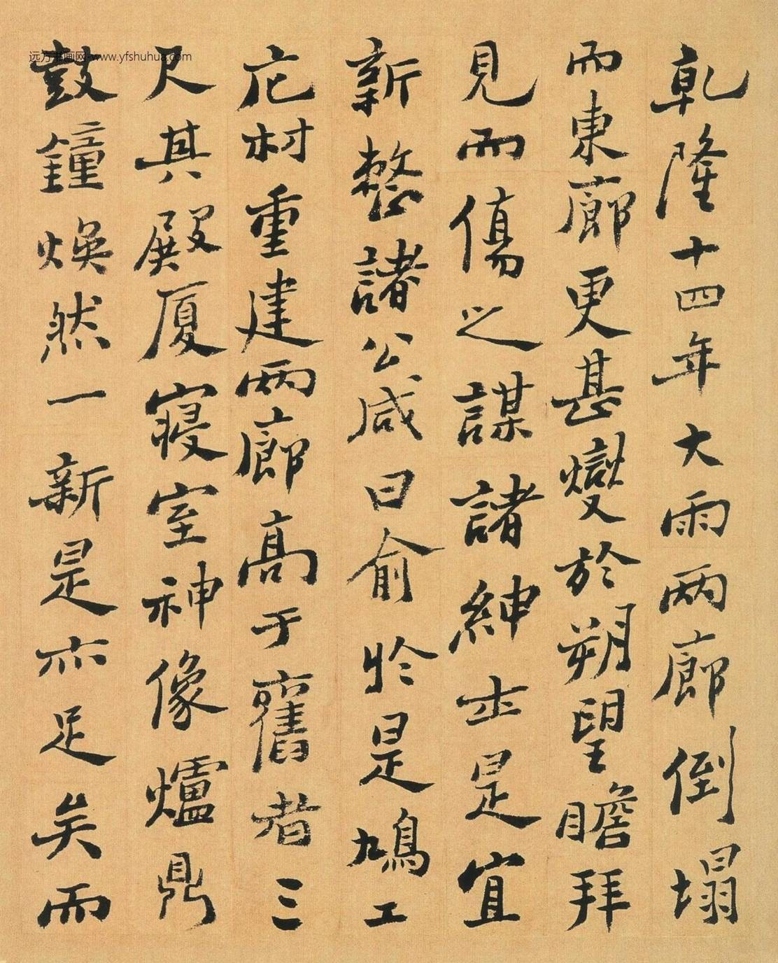 乾隆十四年大雨兩廊倒塌
而東廊更甚燮於朔望瞻拜
見而傷之謀諸紳士是宜
新整諸公咸曰俞於是鳩工
庀材重建兩廊高于舊者三
尺其殿厦寝室神像爐鼎
鼓鐘煥然一新是亦足矣而
远方书画网 www.yfshuhua.com